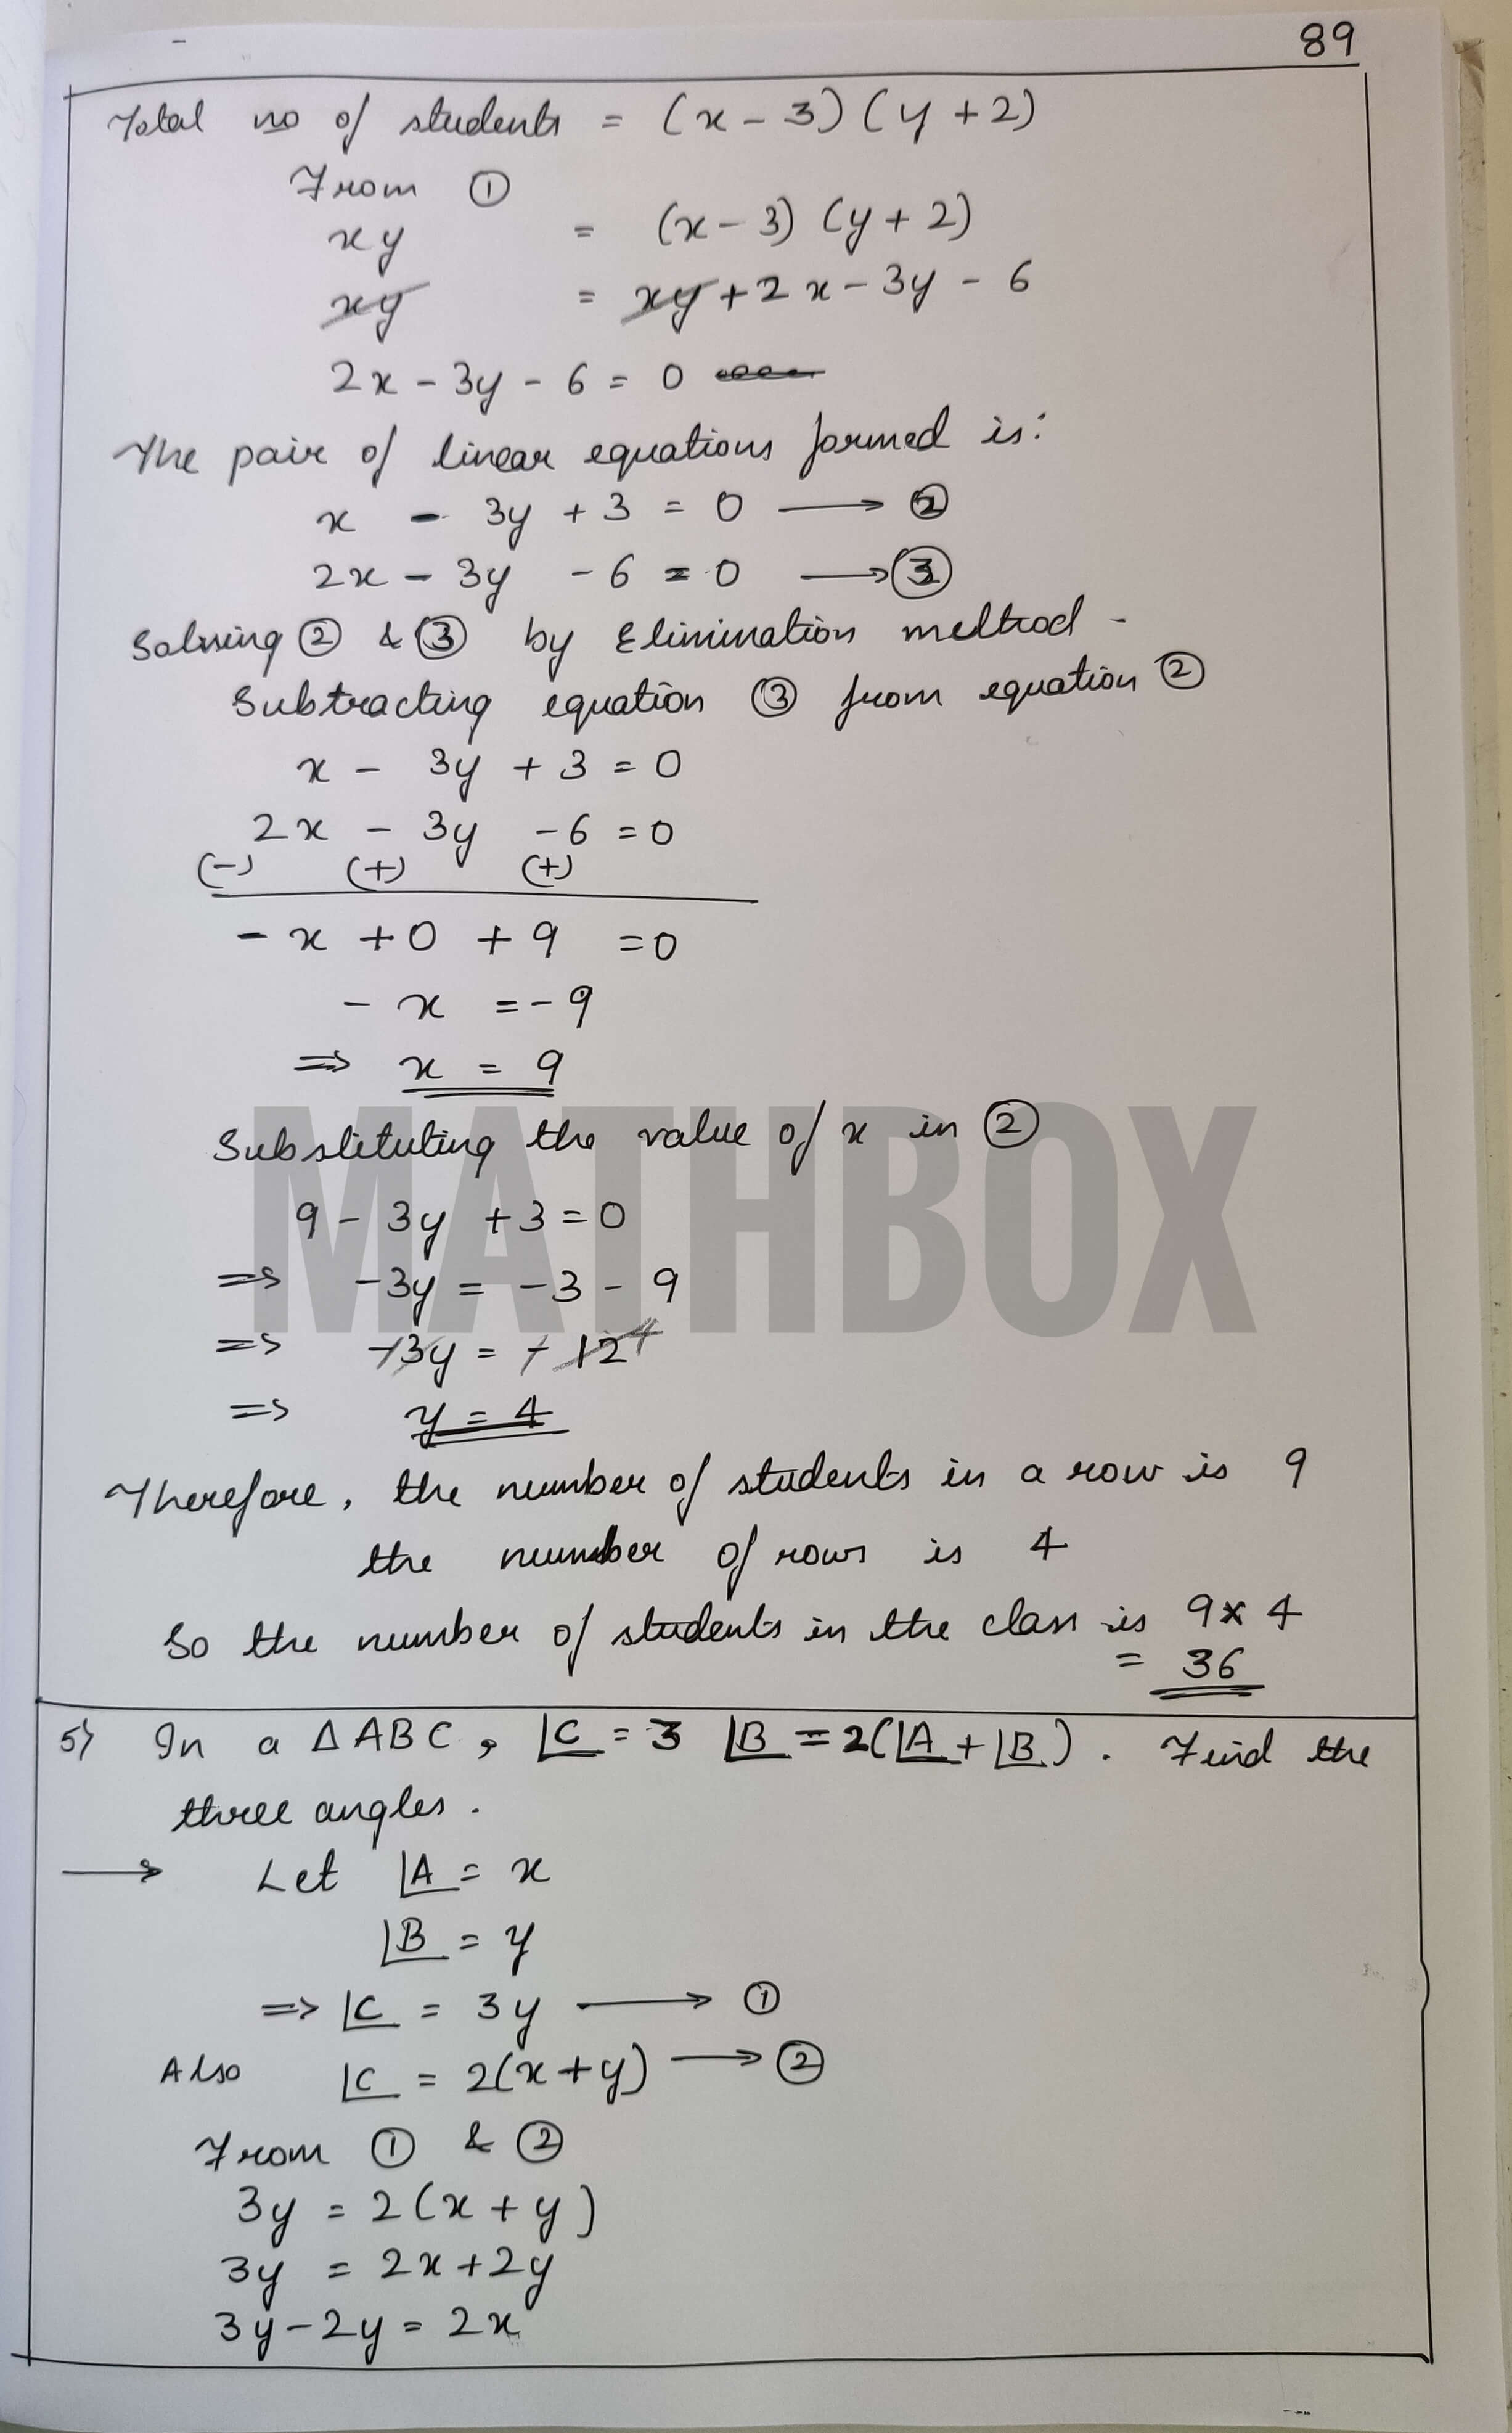 89
Total no of students = (x - 3) (y + 2)
From ①
xy = (x - 3) (y + 2)
xy = xy + 2x - 3y - 6
2x - 3y - 6 = 0
The pair of linear equations formed is:
x - 3y + 3 = 0 ⟶ ②
2x - 3y - 6 = 0 ⟶ ③
Solving ② & ③ by Elimination method -
Subtracting equation ③ from equation ②
x - 3y + 3 = 0
2x - 3y - 6 = 0
(-) (+) (+)
- x + 0 + 9 = 0
- x = - 9
⇒ x = 9
Substituting the value of x in ②
MATHBOX
9 - 3y + 3 = 0
⇒ -3y = -3 - 9
⇒ -3y = -12 4
⇒ y = 4
Therefore, the number of students in a row is 9
the number of rows is 4
So the number of students in the class is 9 × 4
= 36
5) In a ΔABC, ∠C = 3 ∠B = 2(∠A + ∠B). Find the
three angles.
⟶ Let ∠A = x
∠B = y
⇒ ∠C = 3y ⟶ ①
Also ∠C = 2(x + y) ⟶ ②
From ① & ②
3y = 2(x + y)
3y = 2x + 2y
3y - 2y = 2x